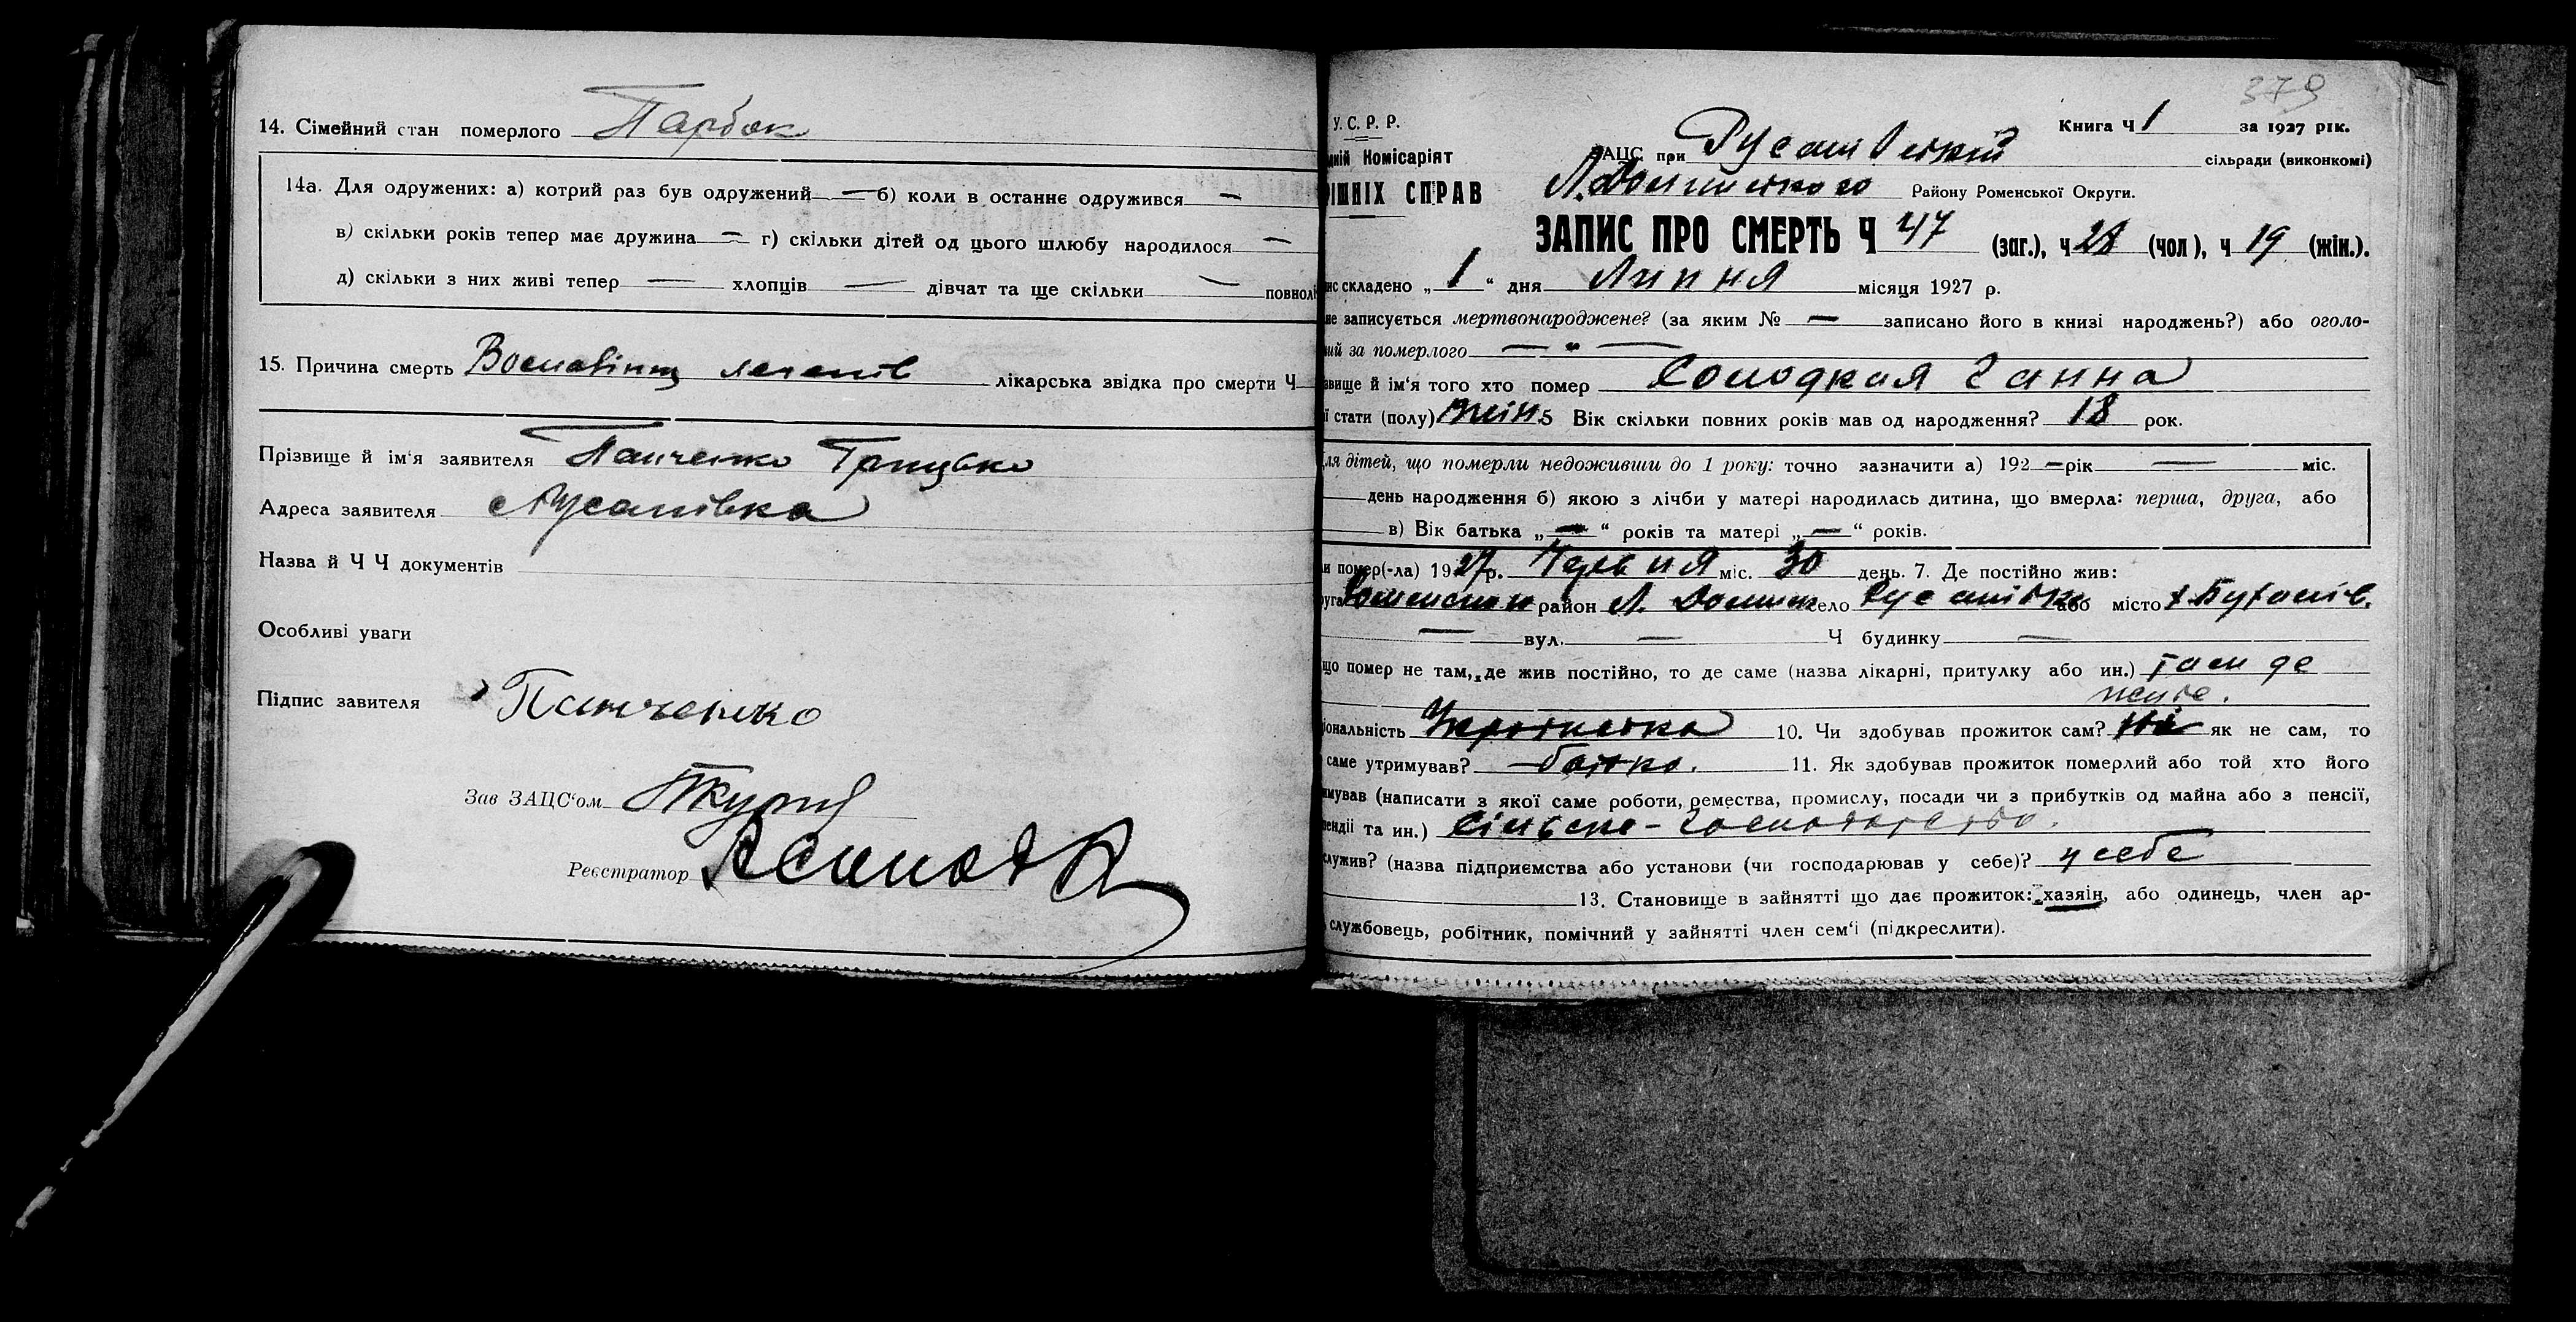 14. Сімейний стан померлого Парбок
14а. Для одружених: а) котрий раз був одружений — б) коли в останнє одружився —
в) скільки років тепер має дружина — г) скільки дітей од цього шлюбу народилося —
д) скільки з них живі тепер — хлопців — дівчат та ще скільки — повнолі
15. Причина смерть легенів лікарська звідка про смерти Ч
Прізвище й ім'я заявителя Панченко Грицько
Адреса заявителя с Русанівка
Назва й Ч Ч документів
Особливі уваги
Підпис завителя Панченко
Зав ЗАЦС'ом
Реєстратор
379
У. С. Р. Р.
Книга Ч 1 за 1927 рік.
дній Комісаріят
ЗАЦС при Русанівській сільради (виконкомі)
ІШНІХ СПРАВ
Л. Долинського Району Роменської Округи.
ЗАПИС ПРО СМЕРТЬ Ч 47 (заг.), ч 28 (чол), ч 19 (жін.).
ис складено „ 1 “ дня Липня місяця 1927 р.
не записується мертвонароджене? (за яким № — записано його в книзі народжень?) або оголо-
ший за померлого — „ —
звище й ім'я того хто помер Солодкая Ганна
ї стати (полу) жін. 5 Вік скільки повних років мав од народження? 18 рок.
ля дітей, що померли недоживши до 1 року: точно зазначити а) 192 — рік — міс.
день народження б) якою з лічби у матері народилась дитина, що вмерла: перша, друга, або
в) Вік батька „ — “ років та матері „ — “ років.
и помер(-ла) 1927 р. Червня міс. 30 день. 7. Де постійно жив:
руга Роменська район Л. Долин село Русанівка або місто
— вул. — Ч будинку —
що помер не там, де жив постійно, то де саме (назва лікарні, притулку або ин.) там де
живе.
іональність Українка 10. Чи здобував прожиток сам? Ні як не сам, то
саме утримував? батько. 11. Як здобував прожиток померлий або той хто його
имував (написати з якої саме роботи, ремества, промислу, посади чи з прибутків од майна або з пенсії,
пендії та ин.) Сільське-господарство.
служив? (назва підприємства або установи (чи господарював у себе)? у себе
13. Становище в зайнятті що дає прожиток: хазяін, або одинець, член ар-
службовець, робітник, помічний у зайнятті член сем'і (підкреслити).